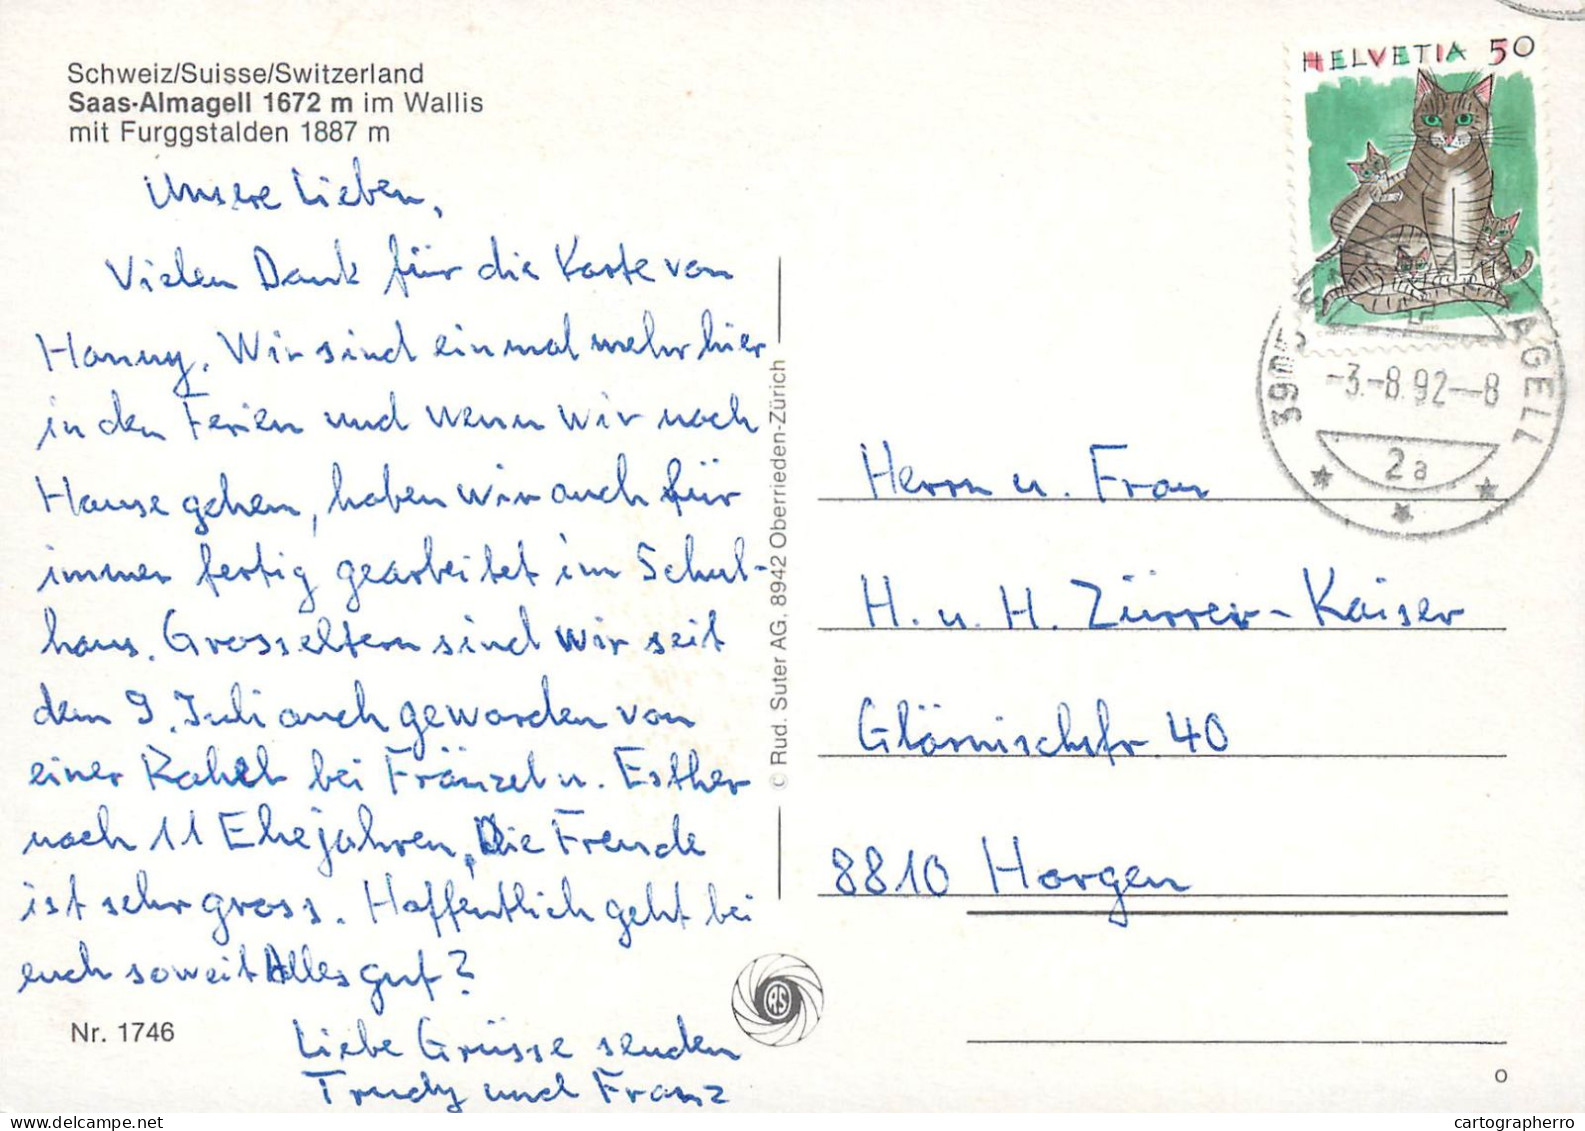 Schweiz/Suisse/Switzerland
Saas-Almagell 1672 m im Wallis
mit Furggstalden 1887 m
Unsere Lieben,
Vielen Dank für die Karte von
Hanny. Wir sind einmal mehr hier
in den Ferien und wenn wir nach
Hause gehen, haben wir auch für
immer fertig gearbeitet im Schul-
haus. Grosseltern sind wir seit
dem 9. Juli auch geworden von
einer Rahel bei Fränzel u. Esther
nach 11 Ehejahren, Die Freude
ist sehr gross. Hoffentlich geht bei
euch soweit Alles gut?
Liebe Grüsse senden
Trudy und Franz
Nr. 1746
© Rud. Suter AG, 8942 Oberrieden-Zürich
RS
HELVETIA 50
3905
AGELL
-3.-8.92--8
2a
Herrn u. Frau
H. u. H. Zürrer-Kaiser
Glärnischstr. 40
8810 Horgen
o
cartographerro